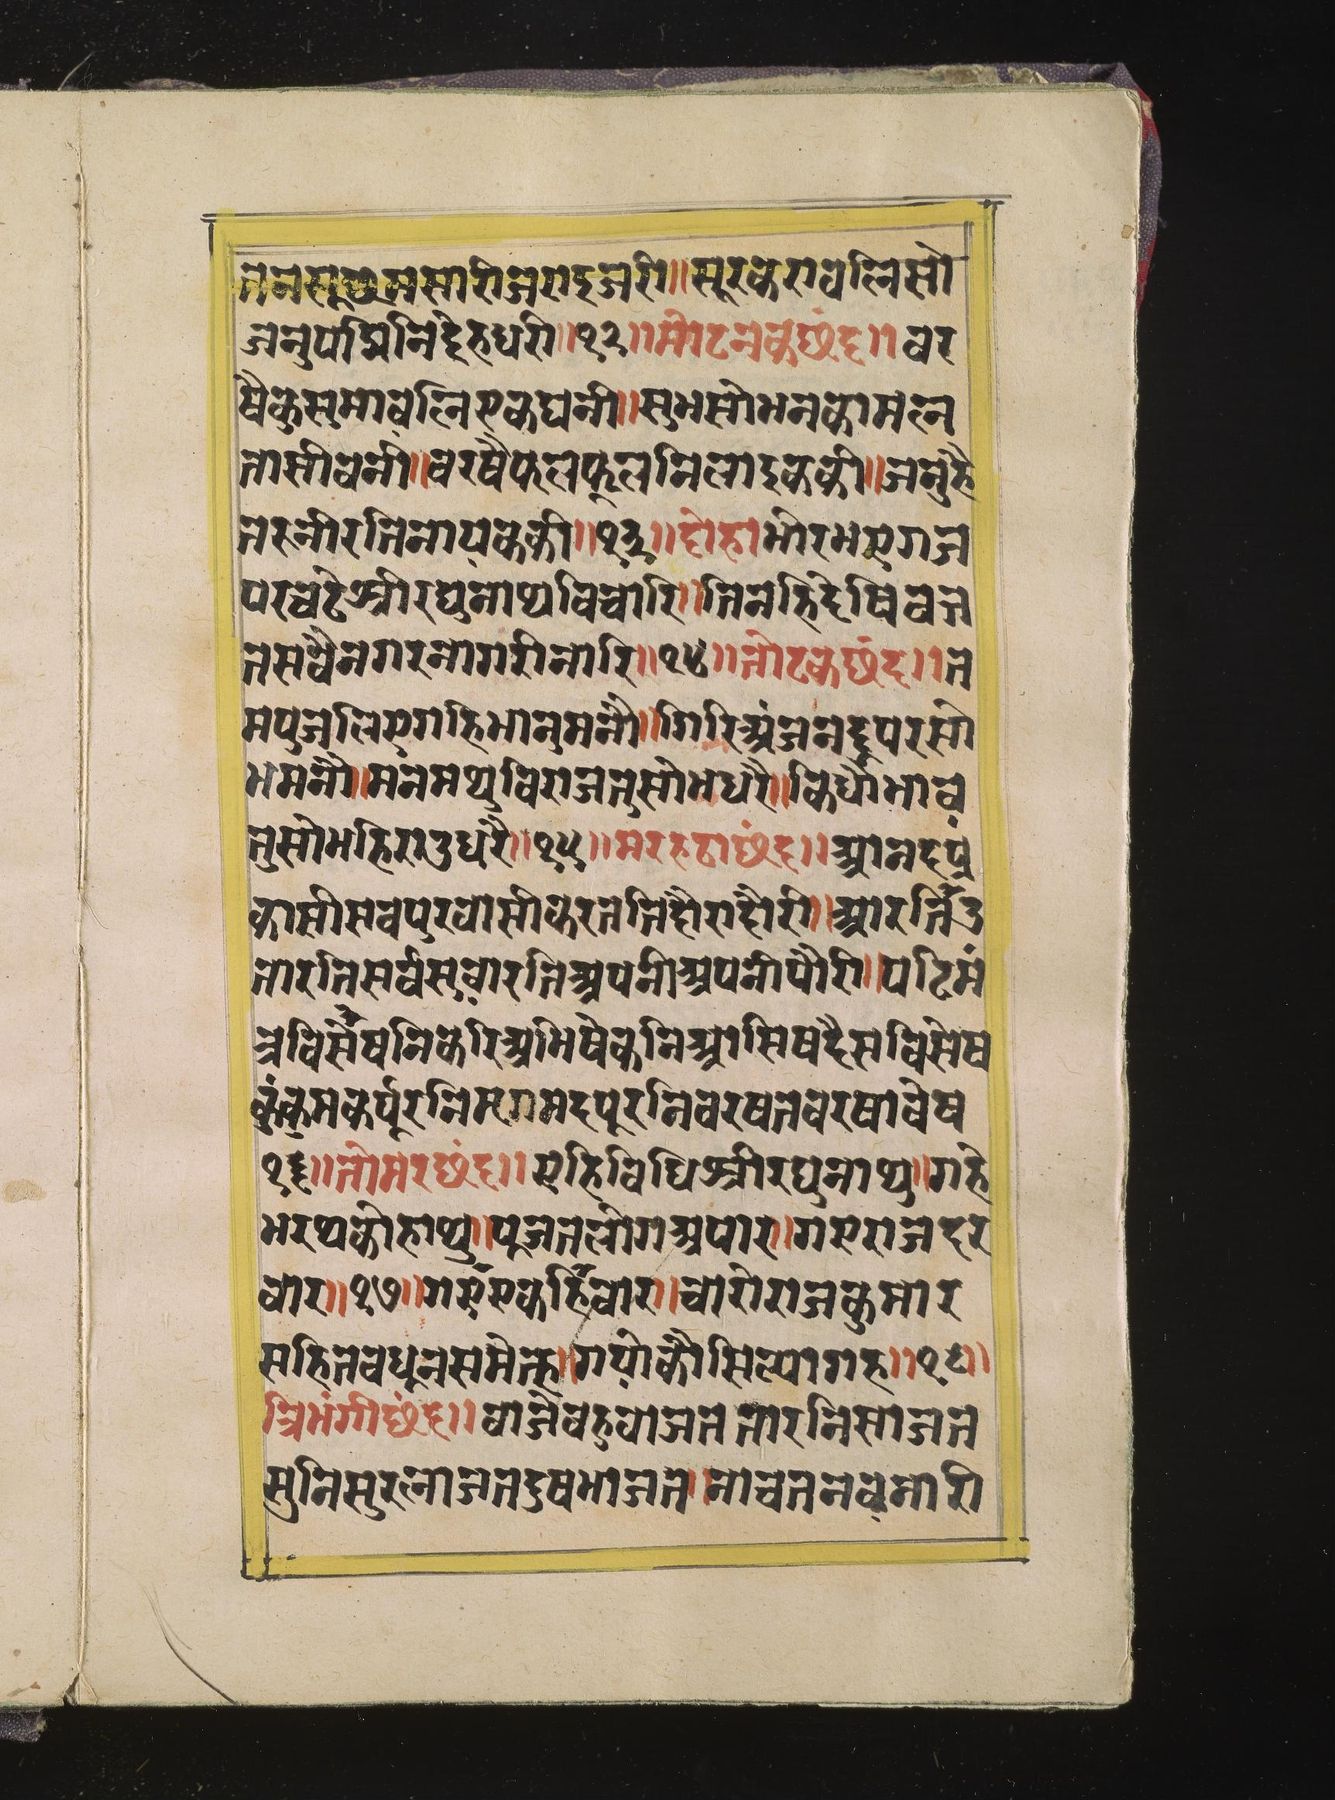 तनसूछमसारीजरादजरी॥सूरकेरावलिसो
जनुपंद्मिनिदेहधरी॥१२॥मोटनकछंद॥वर
षैकुसुमावलिएकघनी॥सुभसोभनकामलन
तासीवनी॥वरषैफलफूलनिलाइककी॥जनुहै
तरुनीरतिनायककी॥१३॥दोहाभीरभएगज
परचढेश्रीरघुनाथविचारि॥तिनहिदेषिवन
तसवैनगरनागरीनारि॥१४॥तोटकछंद॥त
मपुंजलिएगहिभानुमनौ॥गिरिअंजनऊपरसो
भमनौ॥मनमथविराजतसोभधरै॥किधौंभाव
तुसोमहिराउधरै॥१५॥मरहटाछंद॥आनदप्र
कासीसवपुरवासीकरतनिदौरादौरी॥आरतिउ
तारतिसर्वसुवारतिअपनीअपनीपौरी॥पढिमं
त्रविसेषनिकरिअभिषेकनिआसिषदैसविसेष
कुंकुमकर्पूरनिमृगमदपूरनिवरषतवरषावेष
१६॥तोमरछंद॥एहिविधिश्रीरघुनाथ॥गहे
भरथकोहाथ॥पूजतलोगअपार॥गएराजदर
वार॥१७॥गएएकहिवार॥चारोराजकुमार
सहितवधूनसमेत॥गयोकौसिल्यागेह॥१८॥
त्रिभंगीछंद॥वाजेवहुवाजततारनिसाजत
सुनिसुरलाजतदुषभाजत॥नाचतनवनारी